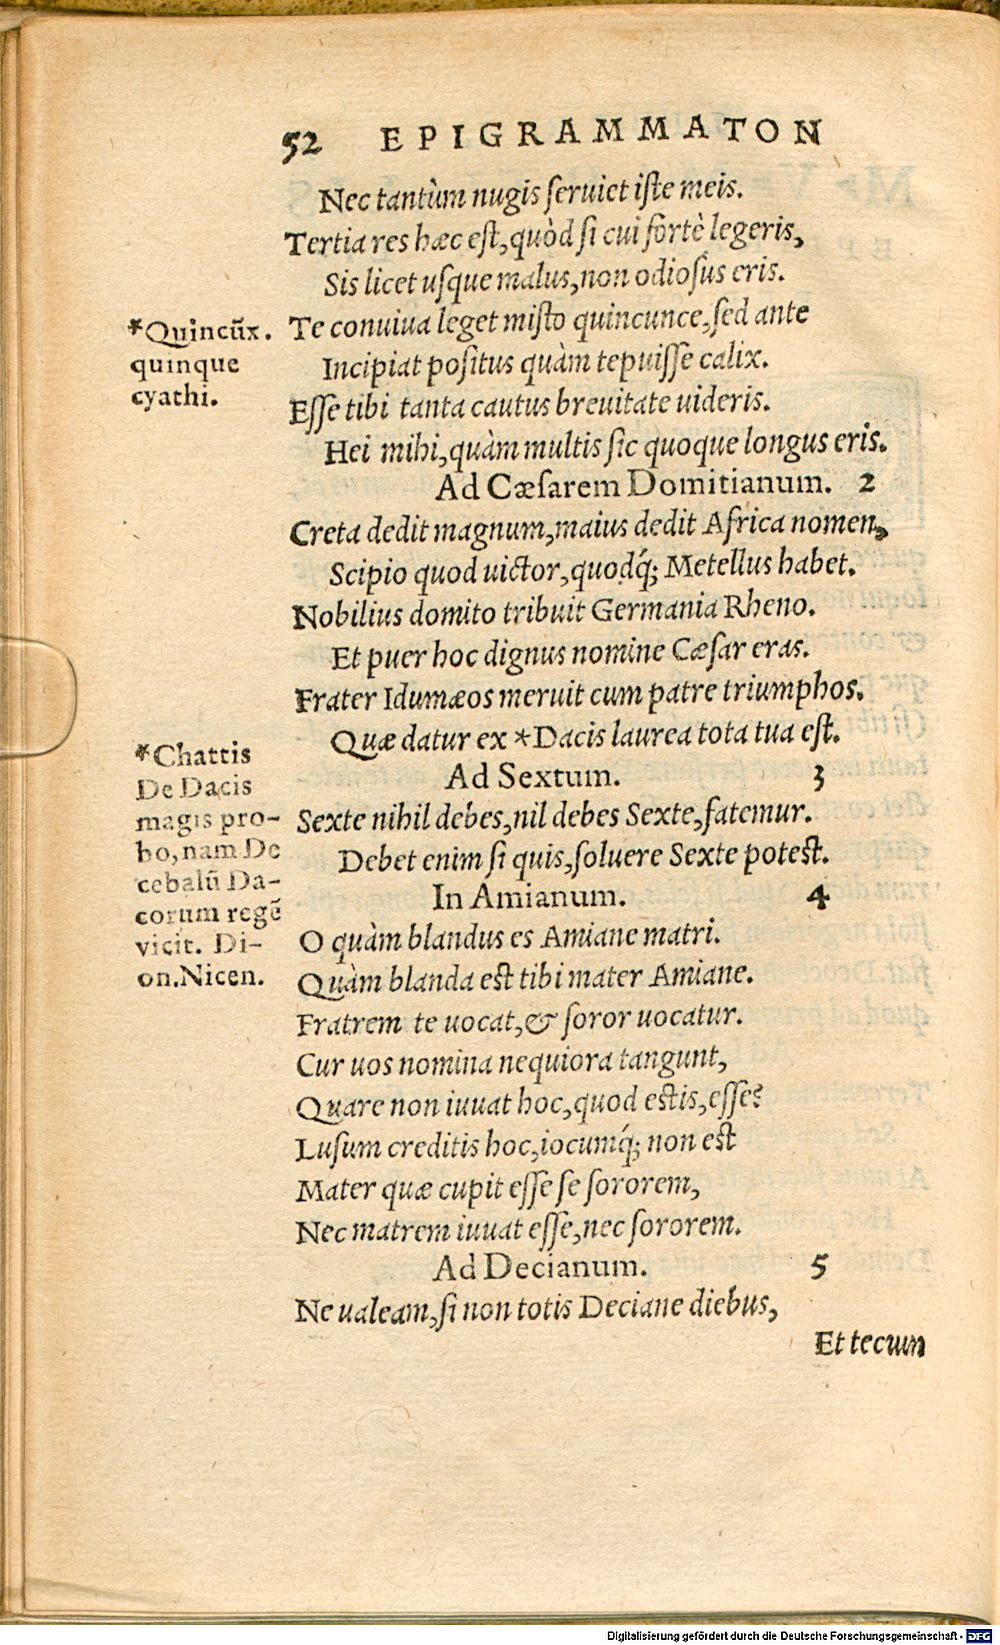 52 EPIGRAMMATON
Nec tantùm nugis ſeruiet iſte meis.
Tertia res hæc eſt, quòd ſi cui fortè legeris,
Sis licet uſque malus, non odioſus eris.
*Quincũx.
quinque
cyathi.
Te conuiua leget miſto quincunce, ſed ante
Incipiat poſitus quàm tepuiſſe calix.
Eſſe tibi tanta cautus breuitate uideris.
Hei mihi, quàm multis ſic quoque longus eris.
Ad Cæſarem Domitianum. 2
Creta dedit magnum, maius dedit Africa nomen,
Scipio quod uictor, quodq́; Metellus habet.
Nobilius domito tribuit Germania Rheno.
Et puer hoc dignus nomine Cæſar eras.
Frater Idumæos meruit cum patre triumphos.
Quæ datur ex *Dacis laurea tota tua eſt.
*Chattis
De Dacis
magis pro-
bo, nam De
cebalũ Da-
corum regẽ
vicit. Di-
on. Nicen.
Ad Sextum. 3
Sexte nihil debes, nil debes Sexte, fatemur.
Debet enim ſi quis, ſoluere Sexte poteſt.
In Amianum. 4
O quàm blandus es Amiane matri.
Quàm blanda eſt tibi mater Amiane.
Fratrem te uocat, & ſoror uocatur.
Cur uos nomina nequiora tangunt,
Quare non iuuat hoc, quod eſtis, eſſe?
Luſum creditis hoc, iocumq́; non eſt
Mater quæ cupit eſſe ſe ſororem,
Nec matrem iuuat eſſe, nec ſororem.
Ad Decianum. 5
Ne ualeam, ſi non totis Deciane diebus,
Et tecum
Digitalisierung gefördert durch die Deutsche Forschungsgemeinschaft - DFG